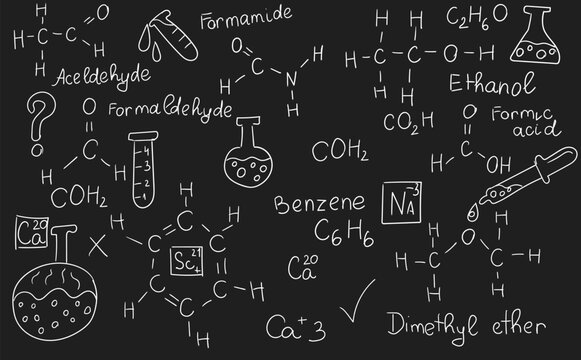 H H O
C — C
H H
Aceldehyde
Formamide
O H
C
H N
H
H H
H — C — C — O — H
H H
C2H6O
Ethanol
CO2H
Formic
acid
O
C
H OH
Formaldehyde
O
C
H H
COH2
4
3
2
1
COH2
Ca 20
X
H H
C
C C H
Sc 21
C C
H C H
H
Benzene
C6H6
Na -3
Ca 20
Ca+3
H H
O
H — C C — H
H H
Dimethyl ether